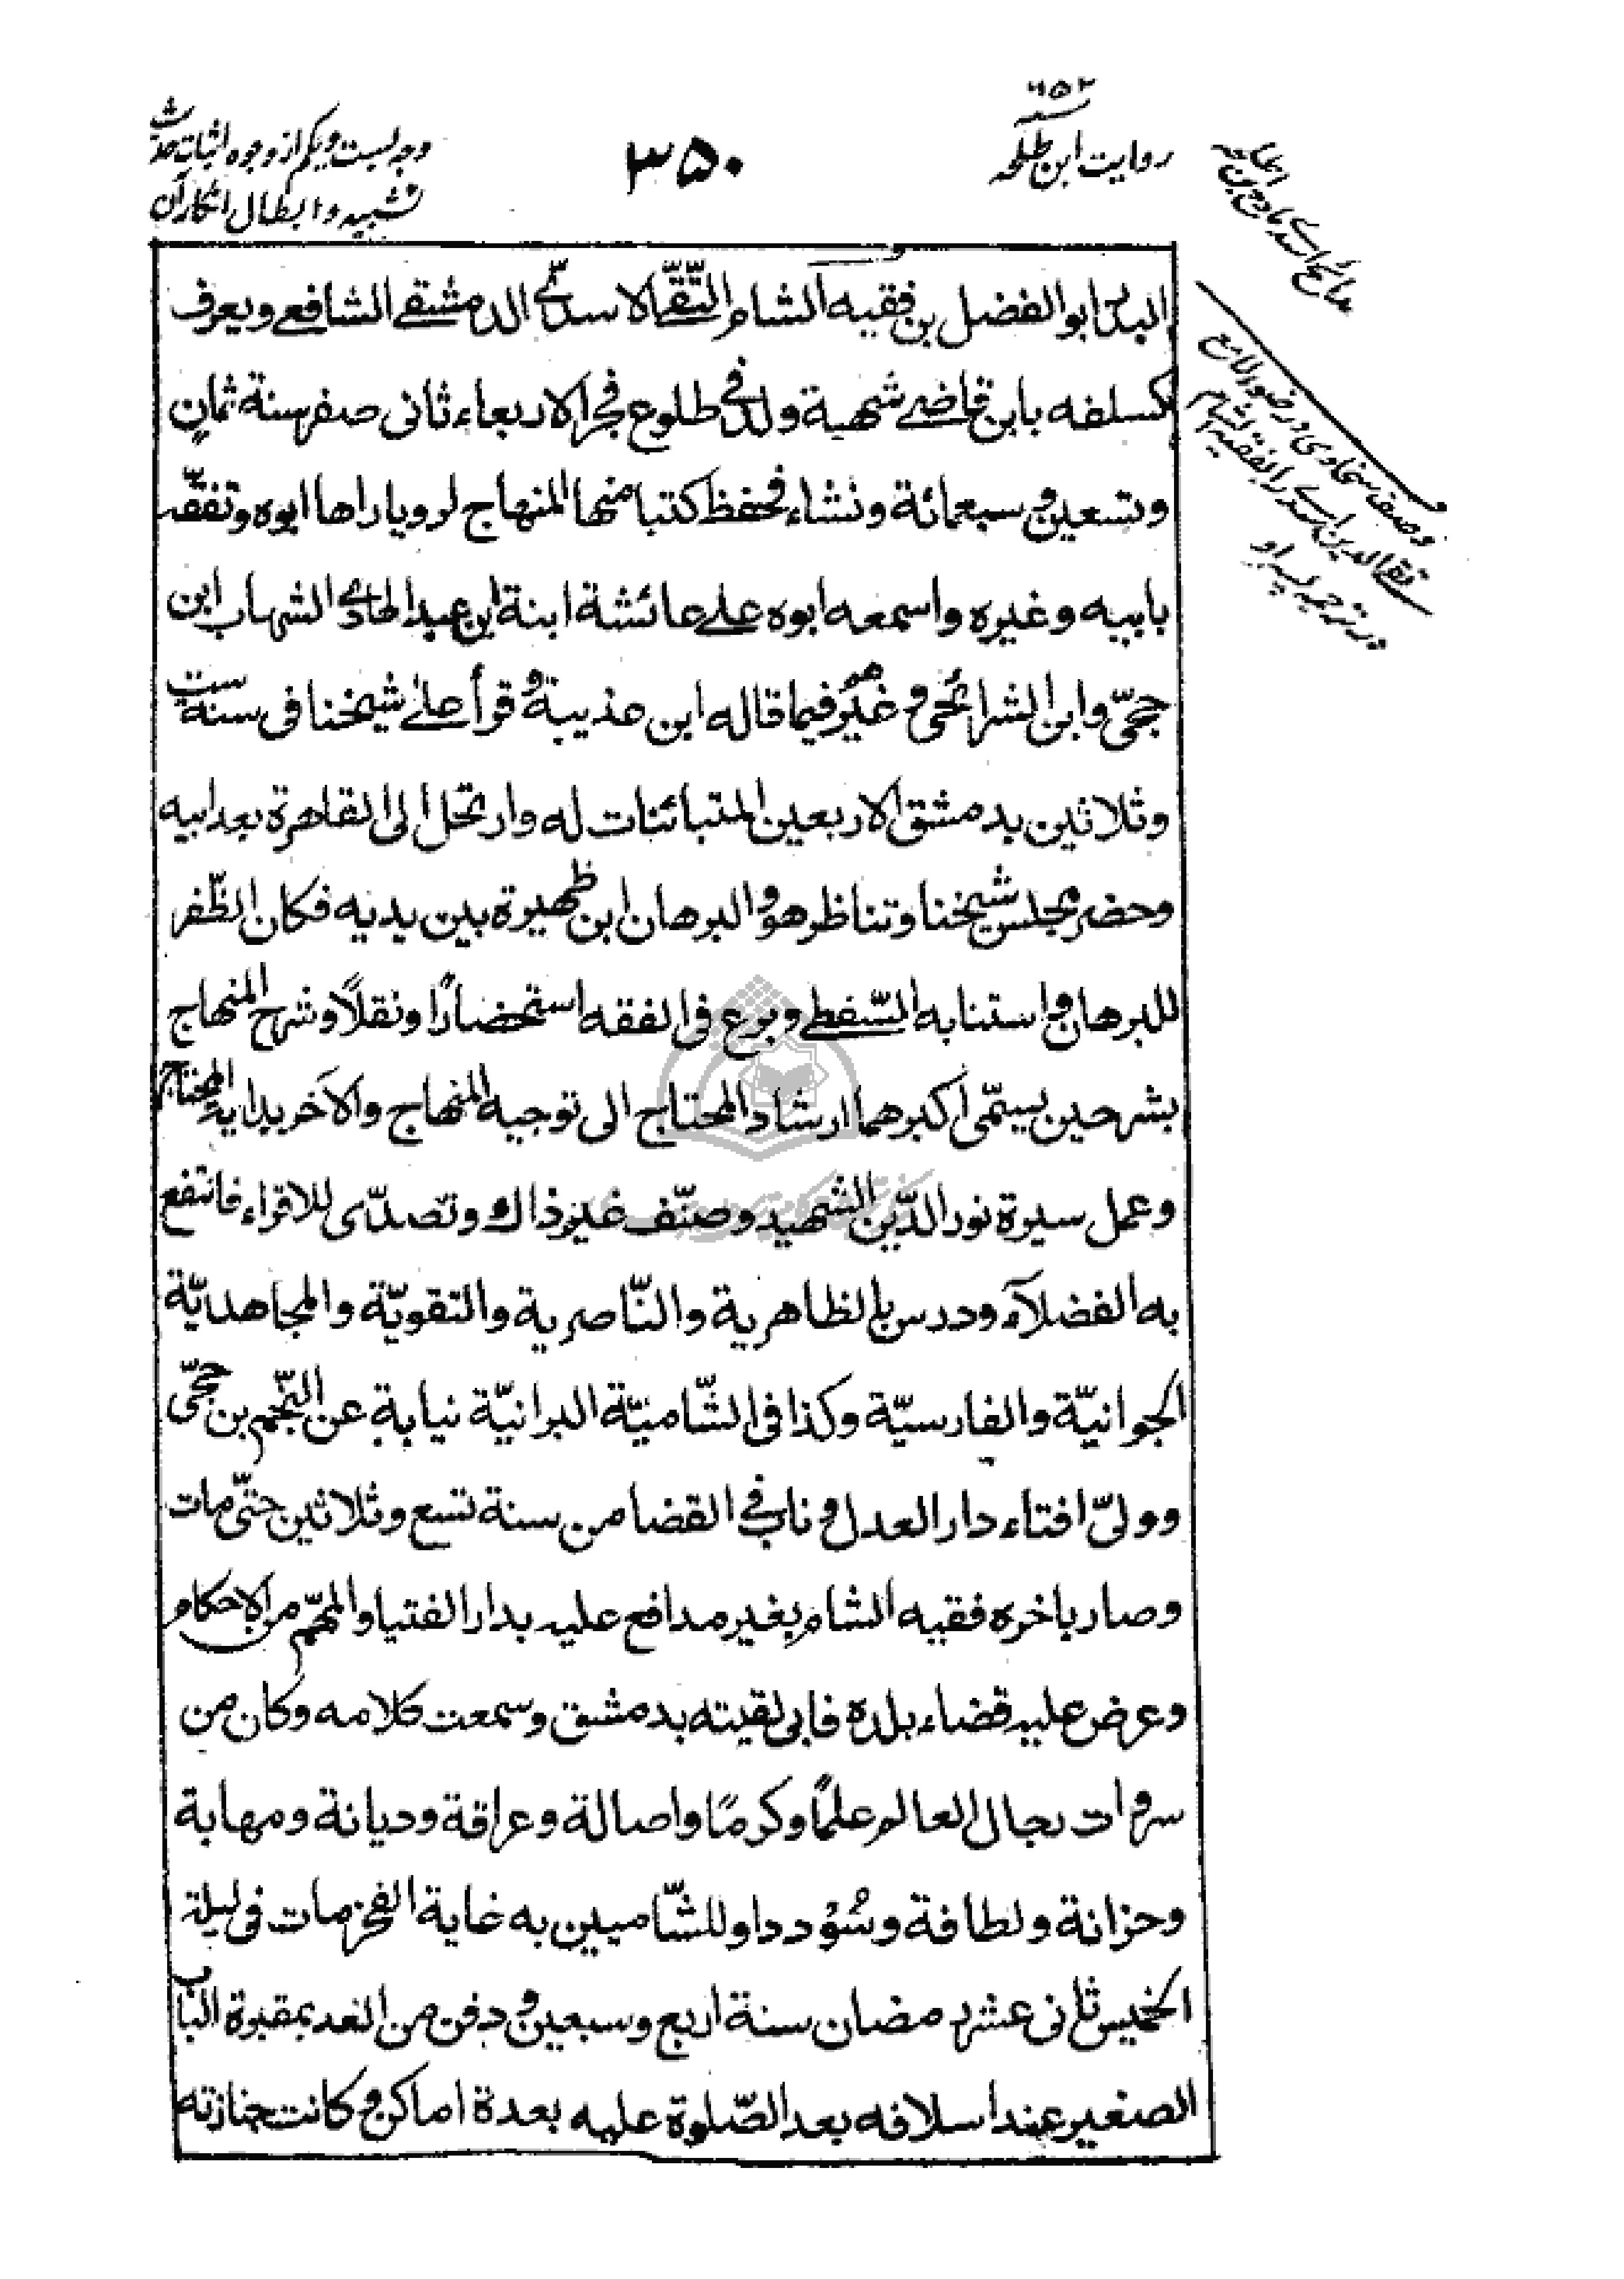 روایت ابن طلحه ۶۵۲
۳۵۰
وجه بست و یکم از وجوه اثبات حدیث
تشبیه و ابطال انکار آن
مدائح اسدی مادح ابن طلحه
وصف سخاوی در ضوء لامع
تقی الدین اسدی را بفقیه الشام
در ترجمه پسر او
البدر ابو الفضل بن فقیه الشام التّقی الاسدیّ الدمشقی الشافعی ویعرف
کسلفه بابن قاضی شهبة ولد فی طلوع فجر الاربعاء ثانی صفر سنة ثمان
وتسعین و سبعمائة ونشاء فحفظ کتبا منها المنهاج لرویا راها ابوه وتفقّه
بابیه وغیره واسمعه ابوه علی عائشة ابنة ابن عبد الهادی الشهاب ابن
حجّی وابن الشرائحی و غیرهم فیما قاله ابن عذیبة و قرأ علی شیخنا فی سنة ست
وثلاثین بدمشق الاربعین المتبائنات له وارتحل الی القاهرة بعد ابیه
وحضر مجلس شیخنا وتناظر هو و البرهان ابن ظهیرة بین یدیه فکان الظّفر
للبرهان و استنابه السّفطی وبرع فی الفقه استحضارًا ونقلًا وشرح المنهاج
بشرحین یسمّی اکبرهما ارشاد المحتاج الی توجیه المنهاج والآخر بدایة المحتاج
وعمل سیرة نور الدّین الشهید وصنّف غیر ذاك وتصدّی للاقراء فانتفع
به الفضلآء ودرس بالظاهریة والنّاصریة والتقویّة والمجاهدیّة
الجوانیّة والفارسیّة وکذا فی الشّامیّة البرانیّة نیابة عن النّجم بن حجّی
وولیّ افتاء دار العدل و ناب فی القضا من سنة تسع وثلاثین حتّی مات
وصار باخره فقیه الشام بغیر مدافع علیه بدار الفتیا والمهمّ من الاحکام
وعرض علیه قضاء بلده فابی لقیته بدمشق وسمعت کلامه وکان من
سروات رجال العالم علمًا وکرمًا واصالة وعراقة ودیانة ومهابة
وحزانة ولطافة وسُؤددا وللشّامیین به غایة الفخر مات فی لیلة
الخمیس ثانی عشر رمضان سنة اربع وسبعین و دفن من الغد بمقبرة الباب
الصغیر عند اسلافه بعد الصّلوة علیه بعدة اماکن و کانت جنازته